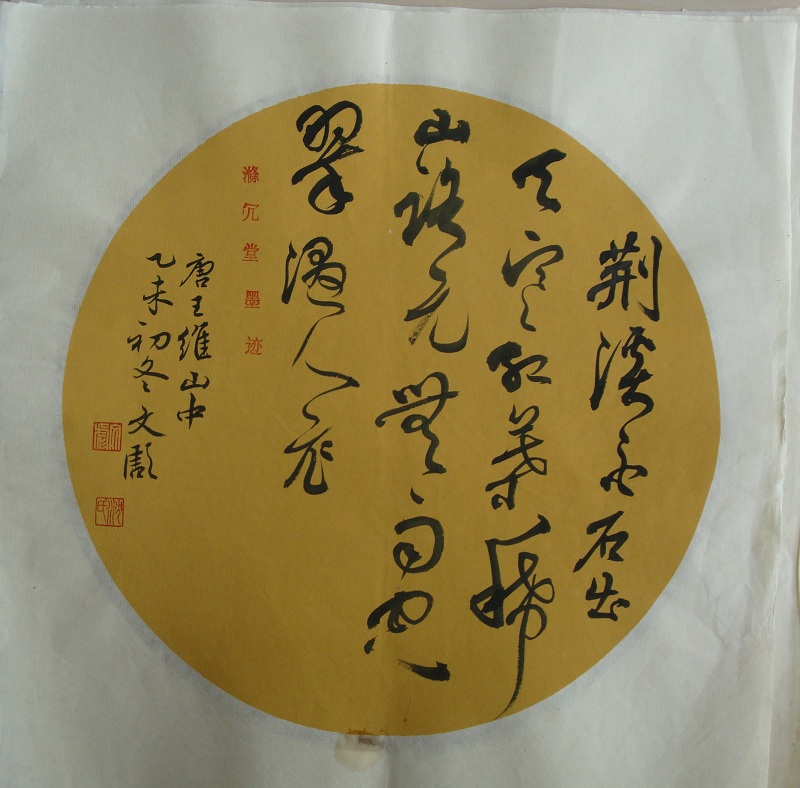 荆溪白石出
天寒紅葉稀
山路元無雨空
翠濕人衣
滌冗堂墨迹
唐王維山中
乙未初冬文